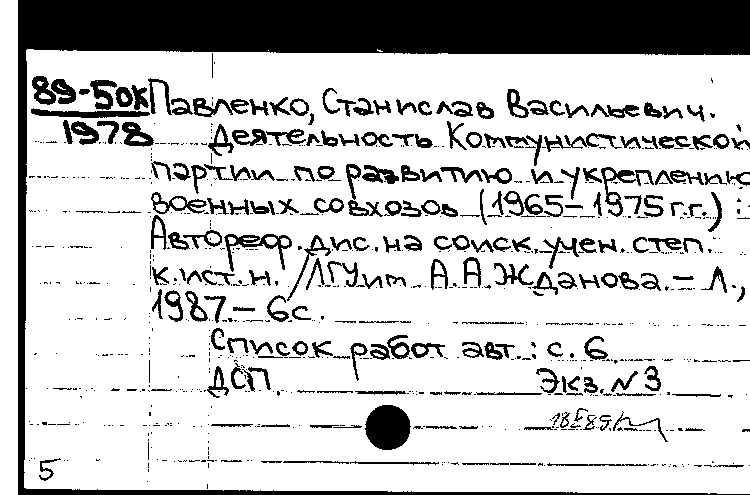 89-50к Павленко, Станислав Васильевич.
1978 Деятельность Коммунистической
партии по развитию и укреплению
военных совхозов (1965-1975 г.г.) :
Автореф. дис. на соиск. учен. степ.
к. ист. н. / ЛГУ им А.А. Жданова. - Л.,
1987. - 6 с.
Список работ авт. : с. 6
ДСП. Экз. N 3
5